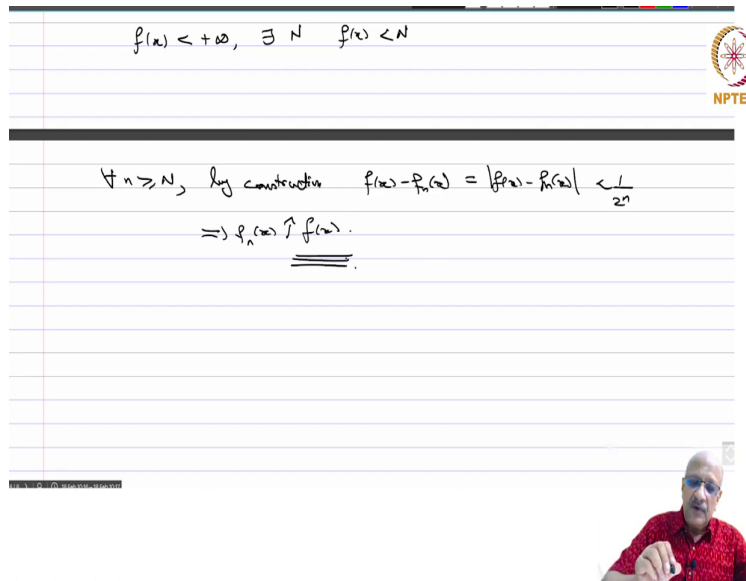 f(x) < +∞, ∃ N f(x) < N
NPTE
∀ n ≥ N, by construction f(x) - fₙ(x) = |f(x) - fₙ(x)| < 1/2ⁿ
⇒ fₙ(x) ↑ f(x).